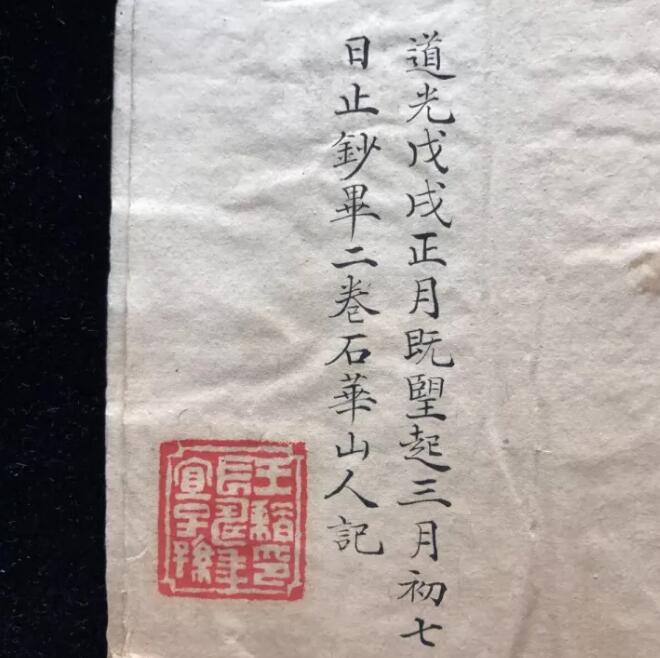 道光戊戌正月既朢起三月初七
日止鈔畢二卷石華山人記
長宜子孫